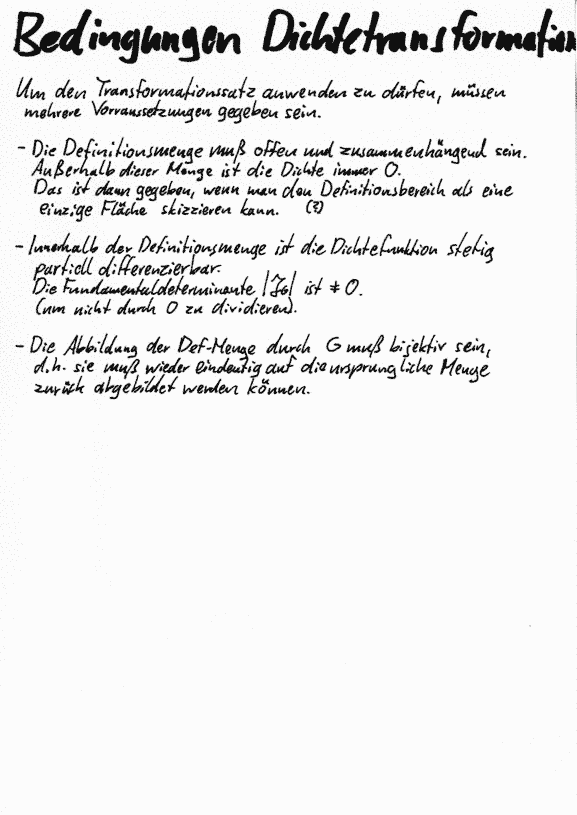 Bedingungen Dichtetransformation
Um den Transformationssatz anwenden zu dürfen, müssen
mehrere Vorraussetzungen gegeben sein.
- Die Definitionsmenge muß offen und zusammenhängend sein.
Außerhalb dieser Menge ist die Dichte immer 0.
Das ist dann gegeben, wenn man den Definitionsbereich als eine
einzige Fläche skizzieren kann. (?)
- Innerhalb der Definitionsmenge ist die Dichtefunktion stetig
partiell differenzierbar.
Die Fundamentaldeterminante |J_G| ist ≠ 0.
(um nicht durch 0 zu dividieren).
- Die Abbildung der Def-Menge durch G muß bijektiv sein,
d.h. sie muß wieder eindeutig auf die ursprüngliche Menge
zurück abgebildet werden können.